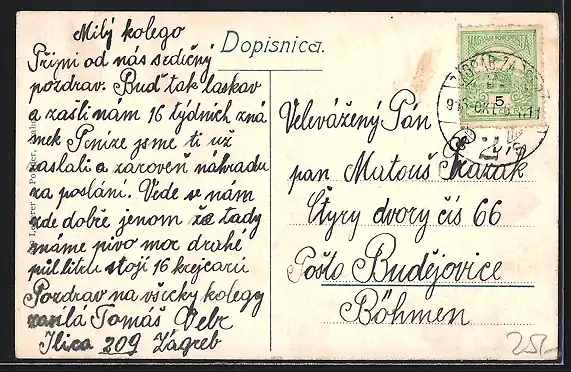 Milý kolego
Přijmi od nás srdečný
pozdrav. Buď tak laskav
a zašli nám 16 týdních zná
mek Peníze jsme ti už
zaslali a zaroveň náhradu
za poslání. Vede se nám
zde dobře jenom že tady
máme pivo moc drahé
půl litru stojí 16 krejcarů
Pozdrav na všecky kolegy
zasílá Tomáš Vebr
Ilica 209 Zágreb
Dopisnica.
5
Velevážený Pán
pan Matouš Kazak
Čtyry dvory čís 66
Pošto Budějovice
Böhmen
25/-